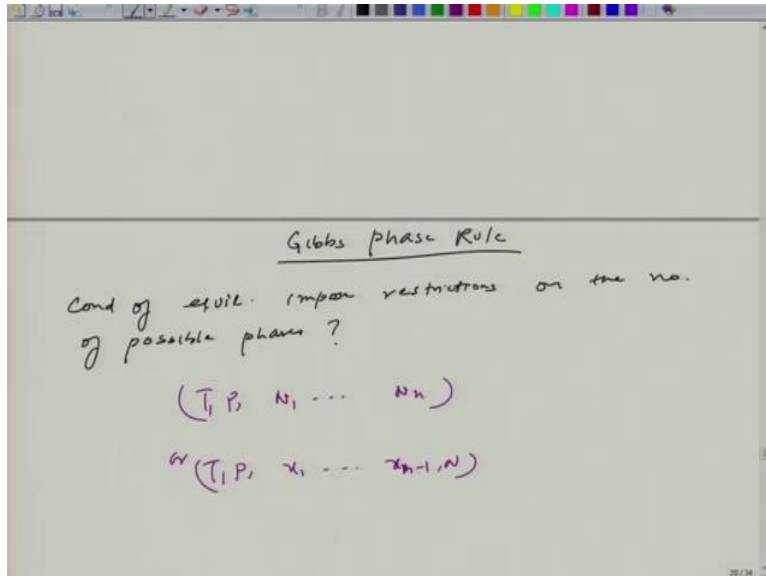 Gibbs Phase Rule
Cond of equil. impose restrictions on the no.
of possible phases ?
(T, P, N₁ ... Nn)
or (T, P, x₁ ... xn-1, N)
20 / 34